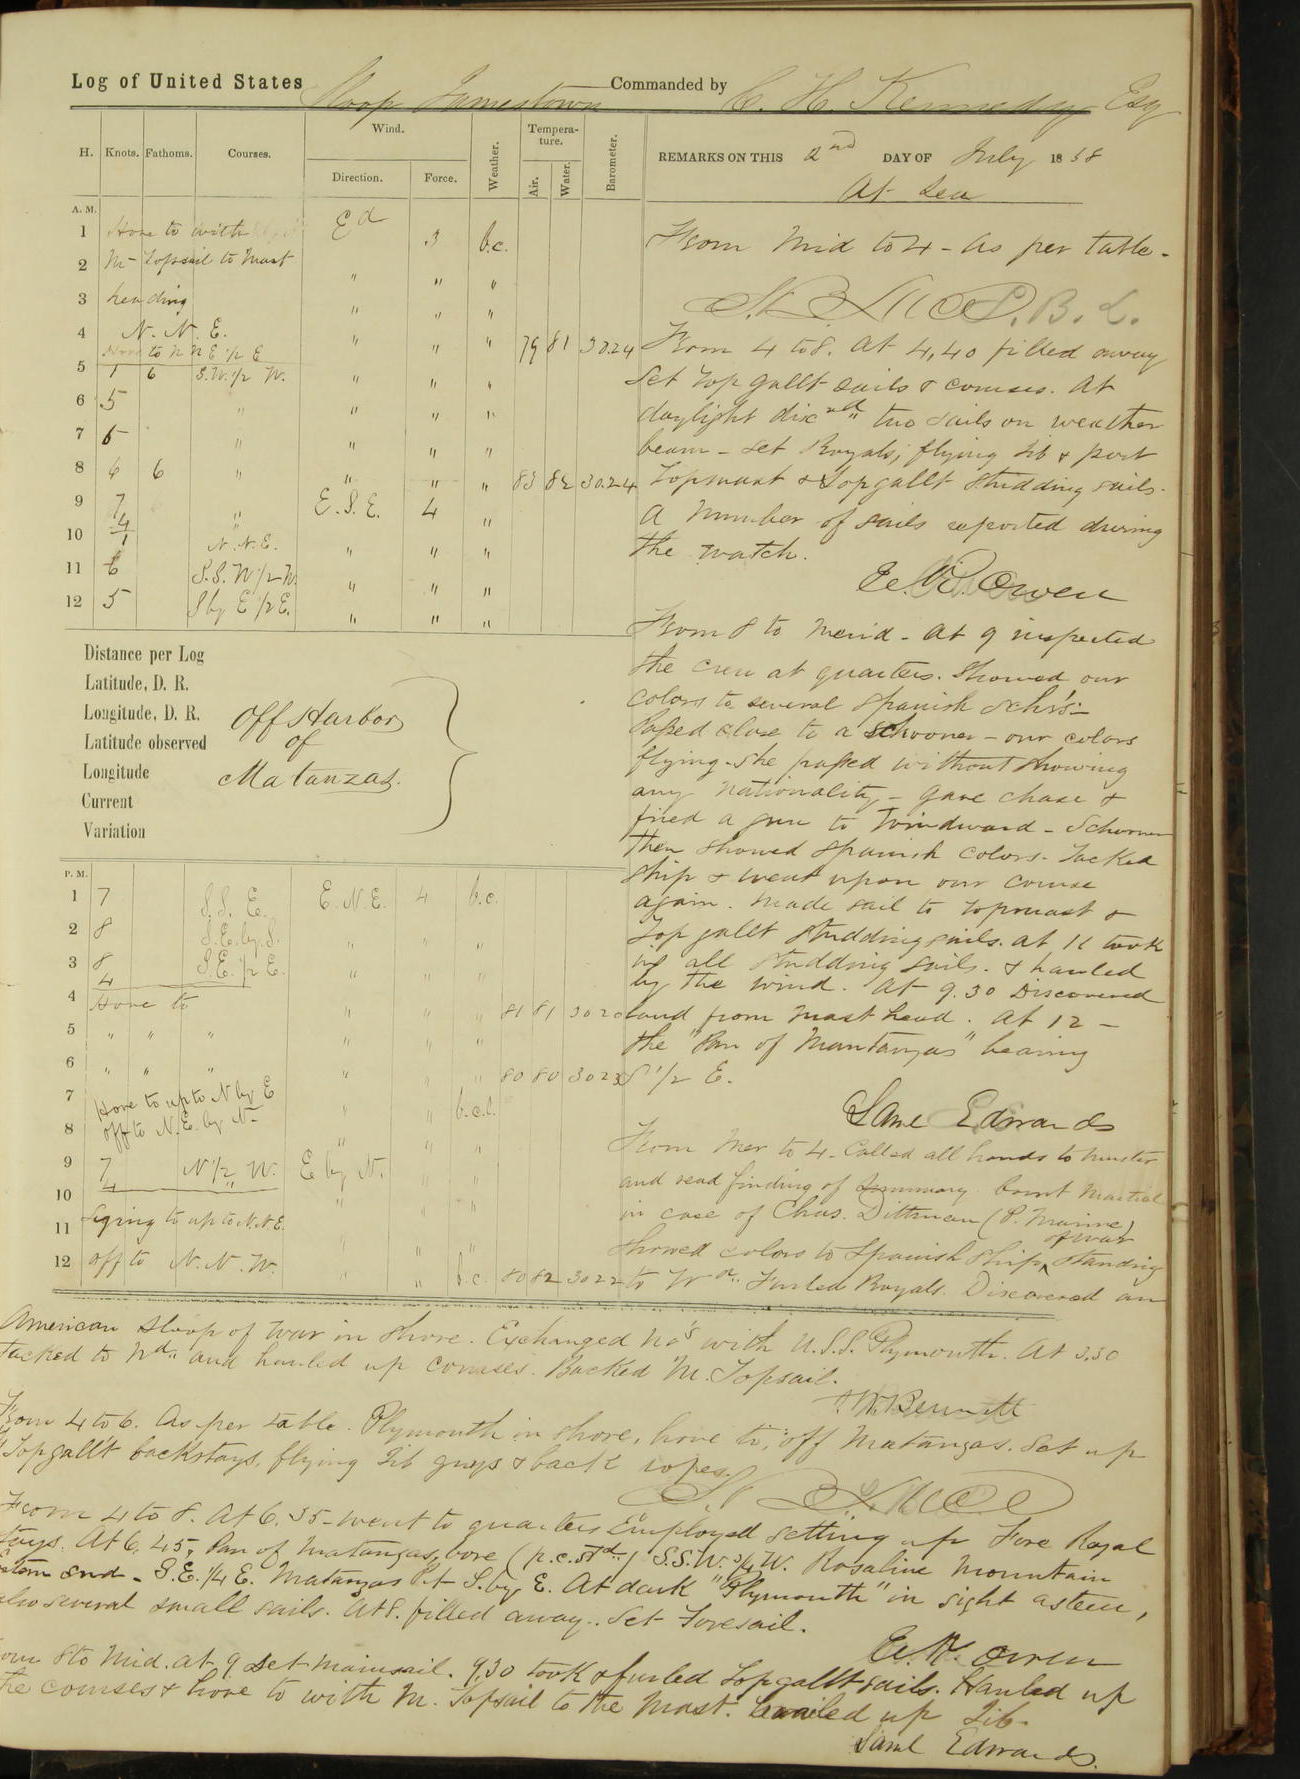 Log of United States Sloop Jamestown Commanded by C. H. Kennedy Esq
H. Knots. Fathoms. Courses. Wind. Direction. Force. Weather. Temperature. Air. Water. Barometer.
REMARKS ON THIS 2nd DAY OF July 1858
At Sea
A. M.
1 Hove to with Ed 3 b.c.
2 M- Topsail to Mast " " "
3 heading " " "
4 N. N. E. " " " 79 81 30.24
Hove to N N E 1/2 E
5 1 6 S.W. 1/2 W. " " "
6 5 " " " "
7 5 " " " "
8 6 6 " " " " 83 82 30.24
9 7 " E. S. E. 4 "
10 4/1 " N.N.E. " " "
11 6 S.S.W 1/2 W. " " "
12 5 S by E 1/2 E. " " "
From Mid to 4 - As per table.
From 4 to 8. At 4,40 filled away
Set Top gallt sails & courses. At
daylight discd two sails on weather
beam - Set Royals, flying Jib & port
Topmast & Topgallt Studding sails.
A number of sails reported during
the watch.
Owen
From 8 to Merid - At 9 inspected
the crew at quarters. Showed our
colors to several Spanish Schrs -
Passed close to a schooner - our colors
flying - She passed without showing
any Nationality - gave chase &
fired a gun to Windward - Schooner
then showed Spanish colors. Tacked
ship & went upon our course
again. Made sail to Topmast &
Top gallt Studding sails. At 11 took
in all studding sails. & hauled
by the wind. At 9.30 Discovered
land from Mast head. At 12 -
the "Pan of Mantanzas" bearing
S 1/2 E.
Saml Edwards
Distance per Log
Latitude, D. R.
Longitude, D. R.
Latitude observed
Longitude
Current
Variation
Off Harbor
of
Matanzas.
P. M.
1 7 S. S. E. E. N. E. 4 b.c.
2 8 S.E. by S. " " "
3 8/4 S.E. 1/2 E. " " "
4 Hove to " " " 81 81 3020
5 " " " " " "
6 " " " " " " 80 80 3023
7 Hove to up to N by E " " b.c.l.
8 off to N.E. by N- " " "
9 7/4 N 1/2 W. E by N. " "
10 " " "
11 Lying to up to N.N.E. " "
12 off to N. N. W. " " b.c. 80 82 3022
From Mer to 4. Called all hands to Muster
and read finding of Summary Court Martial
in case of Chas. Dittman (P. Marine)
Showed colors to Spanish Ship of war standing
to Wd. Furled Royals. Discovered an
American Sloop of War in Shore. Exchanged No's with U.S.S. Plymouth. At 3.30
Tacked to Nd. and hauled up courses. Backed M. Topsail.
Bennett
From 4 to 6. As per table. Plymouth in shore, hove to, off Matanzas. Set up
Topgallt backstays, flying Jib guys & back ropes.
From 4 to 8. At 6.35 - went to quarters Employed setting up Fore Royal
Stays. At 6,45, Pan of Matanzas, bore (p.c.Std.) S.S.W. 3/4 W. Rosaline Mountain
Eastern end - S.E. 1/4 E. Matanzas Pt S. by E. At dark "Plymouth" in sight astern,
also several small sails. At 8. filled away. Set Foresail.
Owen
From 8 to Mid. at 9 set mainsail. 9,30 took & furled Topgallt sails. Hauled up
the courses & hove to with M. Topsail to the Mast. up Jib.
Saml Edwards.